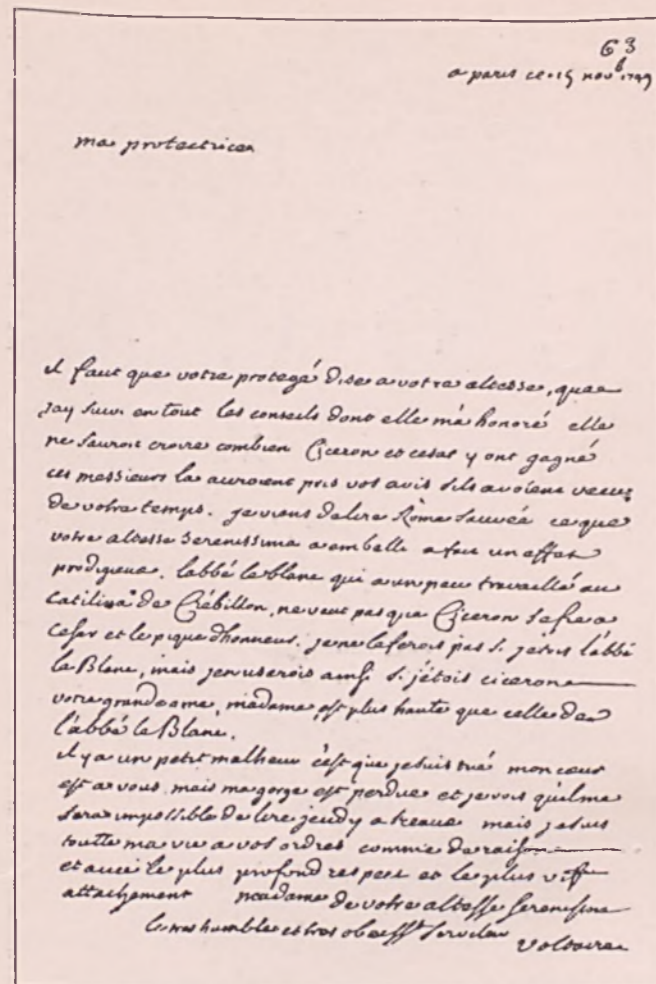 63
a paris ce 15 nov^b 1749
ma protectrice
il faut que votre protegé dise a votre altesse, que
jay suivi en tout les conseils dont elle m'a honoré elle
ne sauroit croire combien Ciceron et cesar y ont gagné
ces messieurs la auroient pris vos avis sils avoient vecu
de votre temps. je viens de lire Rome sauvée ce que
votre altesse serenissime a embelli a fait un effet
prodigieux. labbé le blanc qui a un peu travaillé au
Catilina de Crébillon, ne veut pas que Ciceron se fie a
Cesar et le pique dhonneur. je ne le ferois pas si jetois l'abbé
le Blanc, mais jen userois ainsi si j'étois ciceron
votre grande ame, madame, est plus haute que celle de
l'abbé le Blanc.
il y a un petit malheur c'est que je suis tué mon coeur
est a vous mais ma gorge est perdue et je vois quil me
sera impossible de lire jeudy a sceaux mais je suis
toutte ma vie a vos ordres comme de raison
et avec le plus profond respect et le plus vif
attachement madame de votre altesse serenissime
le tres humble et tres obeisst serviteur
Voltaire